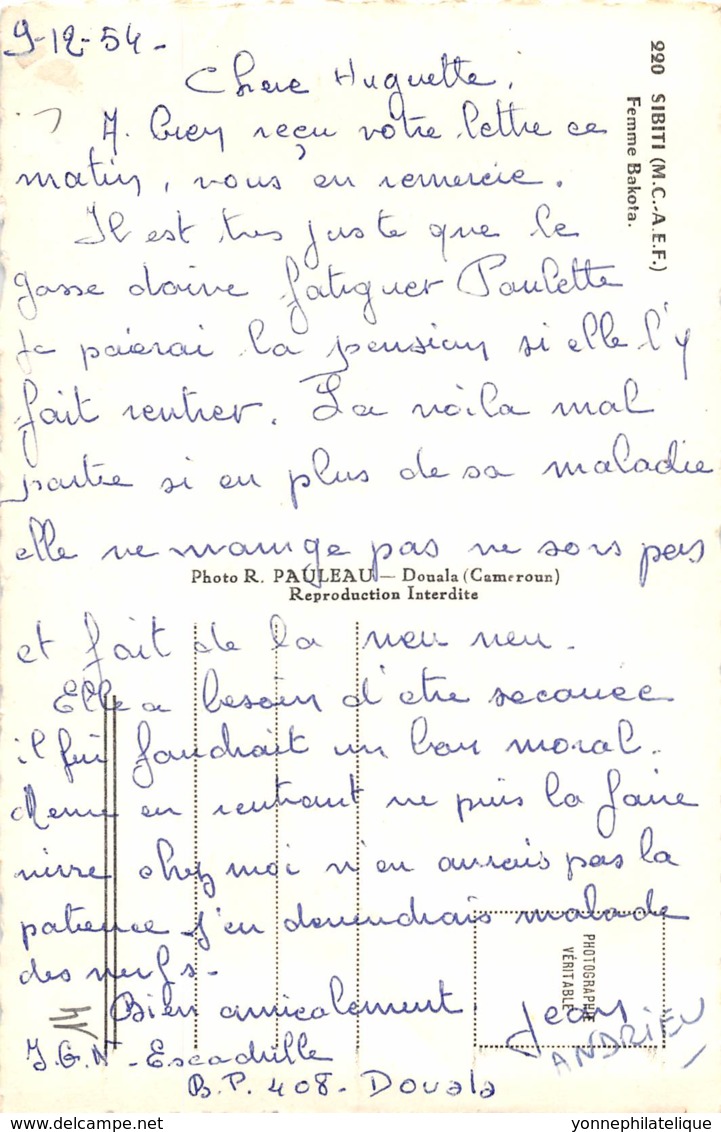 9-12-54-
Chere Huguette,
A. Bien reçu votre lettre ce
matin, vous en remercie.
Il est tres juste que le
gosse doive fatiguer Paulette
Je paierai la pension si elle l'y
fait rentrer. La voila mal
partie si en plus de sa maladie
elle ne mange pas ne sors pas
et fait de la neu neu.
Elle a besoin d'etre secouée
il lui faudrait un bon moral.
Meme en rentrant ne puis la faire
vivre chez moi n'en aurais pas la
patience j'en deviendrais malade
des nerfs-
Bien amicalement
Jean
ANDRIEU
I.G.N - Escadrille
B.P. 408- Douala
220 SIBITI (M.C.-A.E.F.)
Femme Bakota.
Photo R. PAULEAU — Douala (Cameroun)
Reproduction Interdite
PHOTOGRAPHIE
VÉRITABLE
yonnephilatelique